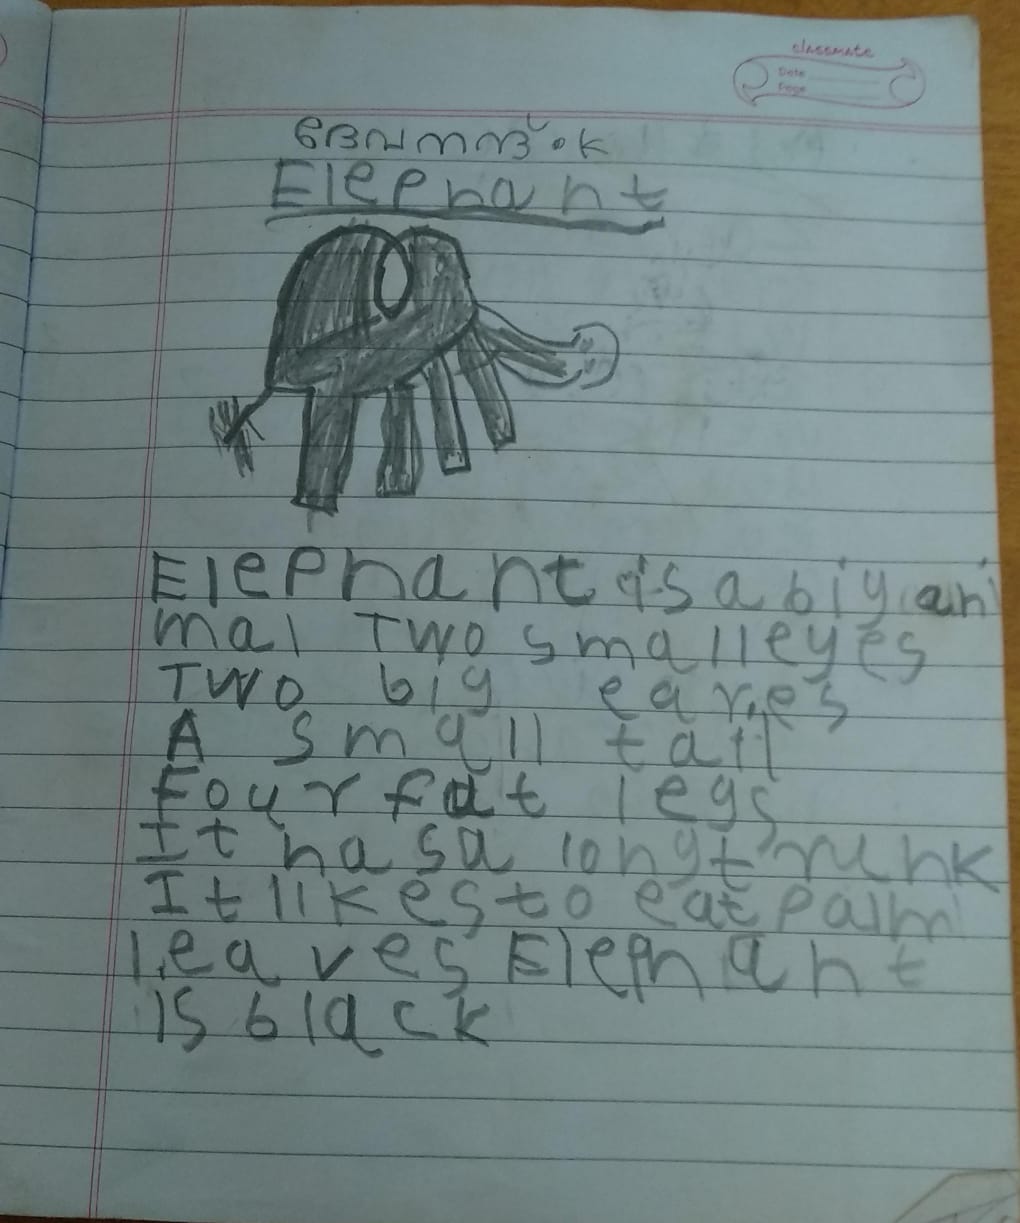 classmate
Date
Page
ദേവനന്ദ്.K
Elephant
Elephant is a big ani
mal Two small eyes
Two big eares
A small tail
Four fat legs
It has a long trunk
It likes to eat palm
leaves Elephant
is black